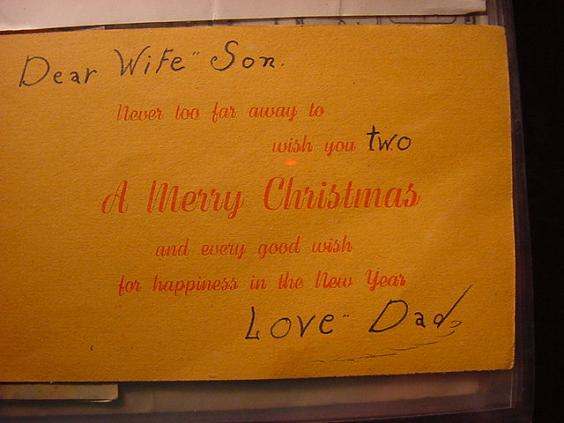 Dear Wife" Son.
Never too far away to
wish you two
A Merry Christmas
and every good wish
for happiness in the New Year
Love" Dad